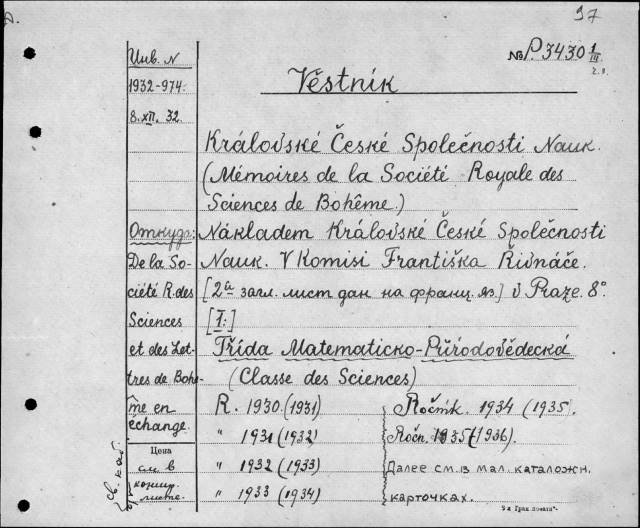 37
№ P.3430 1/III
2.л.
Инв. N
1932-974.
8.XII.32.
Věstník
Královské České Společnosti Nauk.
(Mémoires de la Société Royale des
Sciences de Bohême.)
Откуда:
De la So-
ciété R. des
Sciences
et des Let-
tres de Bohê-
me en
échange.
Nákladem Královské České Společnosti
Nauk. V Komisi Františka Řivnáče.
[2й загл. лист дан на франц. яз.] v Praze. 8°
[I:]
Třída Matematicko-Přírodovědecká
(Classe des Sciences)
R. 1930. (1931)
" 1931 (1932)
" 1932 (1933)
" 1933 (1934)
Ročník. 1934 (1935.
Ročn. 1935 (1936).
Далее см. в мал. каталожн.
карточках.
Цена
см. в
св. каб.